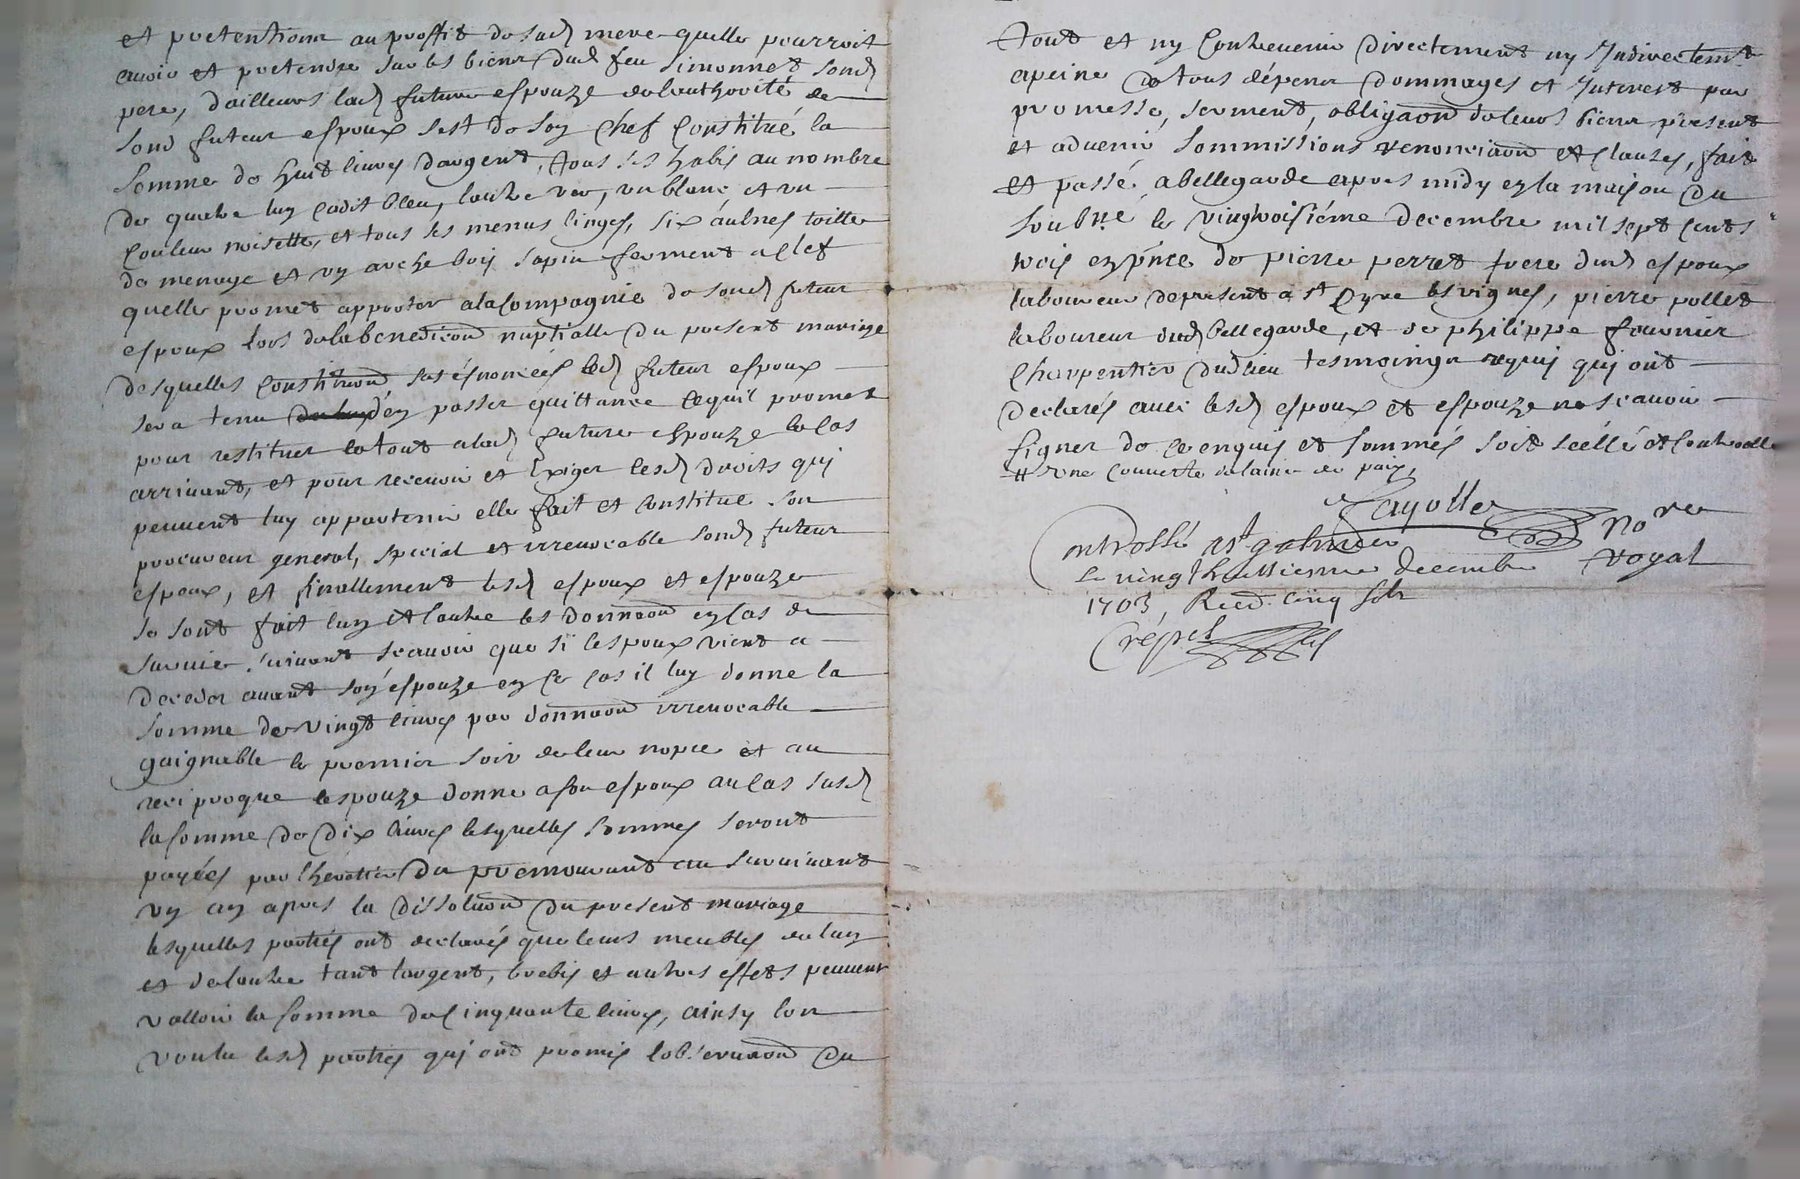 et pretentions au proffit de sad mere quelle pourroit
avoir et pretendre sur les biens dud feu simonnet sond
pere, d'ailleurs lad future espouze de lauthorité de
sond futeur espoux s'est de soy chef constitué la
somme de huit livres dargent, tous ses habis au nombre
de quatre luy cadit bleu, lautre ver, un blanc et un
couleur noisette, et tous ses menus linges, six aulnes toille
de menage et un arche bois sapin ferment a clef
quelle promet apporter a la compagnie de sond futeur
espoux lors de la benediction nuptialle du present mariage
desquelles constitutions led futeur espoux
sera tenu d'en passer quittance ce quil promet
pour restituer le tout a lad future espouze le cas
arrivant, et pour recevoir et Exiger lesd droits qui
peuvent luy appartenir elle fait et constitue son
procureur general, special et irrevocable sond futeur
espoux, et finallement lesd espoux et espouze
se sont fait l'un et lautre les donnaons en cas de
survie suivant scavoir que si lespoux vient a
deceder avant soy espouze en ce cas il luy donne la
somme de vingt livres par donnaon irrevocable
gaignable le premier soir de leur nopce et au
reciproque lespouze donne a son espoux au cas susd
la somme de dix livres lesquelles sommes seront
payées par lheretier du premourant au survivant
un an apres la dissoluon du present mariage
lesquelles parties ont declarés que leurs meubles de lun
et de lautre tant largent, brebis et autres effets peuvent
valloir la somme de cinquante livres, ainsy lon
voulu lesd parties qui ont promis lobservaon du
tout et ny contrevenir directement ny Indirectemt
a peine de tous dépens dommages et Interest par
promesse, serment, obligaon de leurs biens present
et advenir sommissions renonciaons et clauses, fait
et passé a bellegarde apres midy en la maison du
soubné le vingtroisiéme decembre mil sept cents
trois en pnce de pierre perret frere dud espoux
laboureur de present a st Cyre les vignes, pierre pollet
laboureur dud bellegarde, et de philippe fournier
charpentier dud lieu tesmoings requis qui ont
declarés avec lesd espoux et espouze ne scavoir
signer de ce enquis et sommés soit scéllé et controolle
# une couverte de laine de paix,
Fayolle no re
royal
Controllé a st galmier
le vingt huitiesme decembre
1703, Recd. cinq sols
Crépet